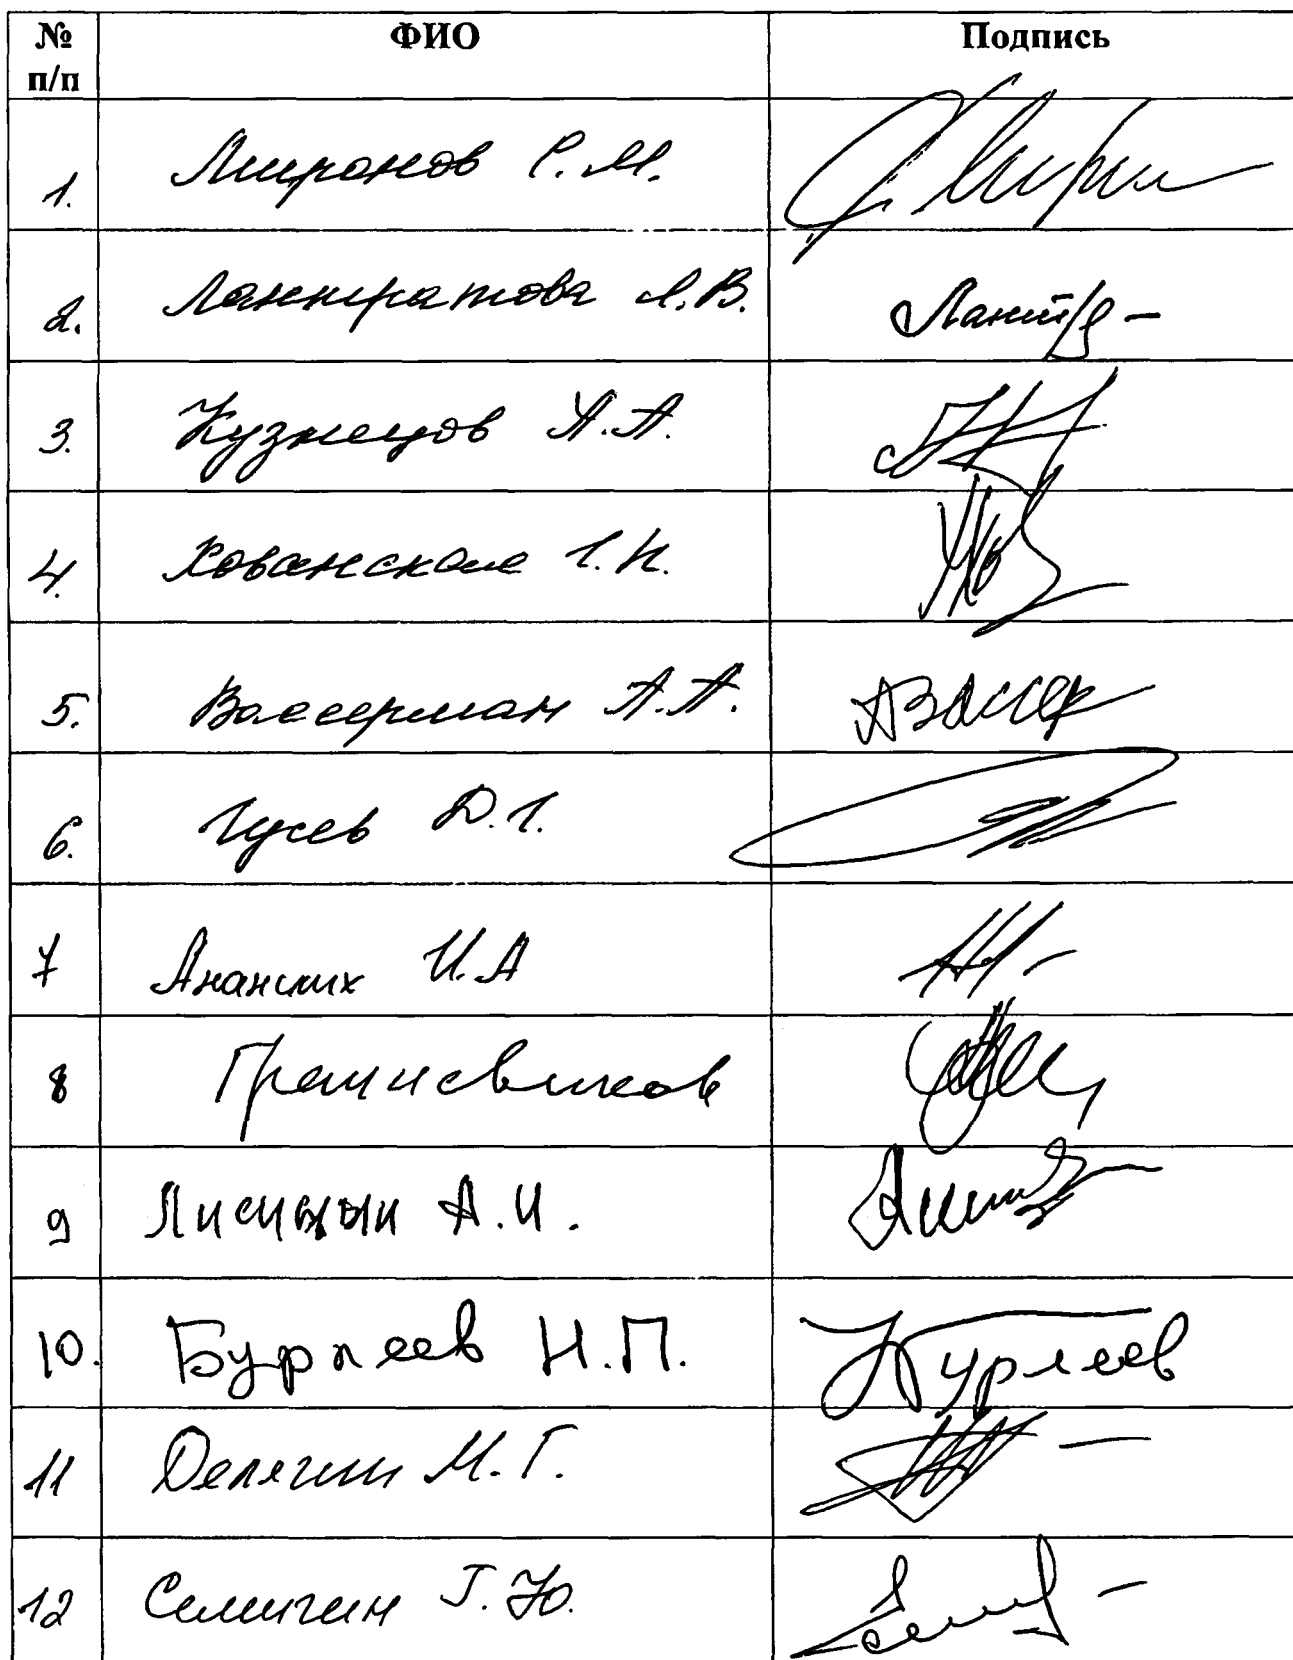 № п/п ФИО Подпись
1. Миронов С.М.
2. Лантратова Я.В.
3. Кузнецов А.А.
4. Хованская Г.Н.
5. Вассерман А.А.
6. Гусев Д.Г.
7 Ананских И.А
8 Грешневиков
9 Лисицын А.И.
10. Бурляев Н.П.
11 Делягин М.Г.
12 Семигин Г.Ю.